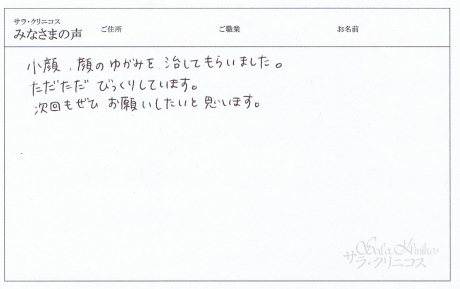 サラ・クリニコス
みなさまの声 ご住所 ご職業 お名前
小顔、顔のゆがみを治してもらいました。
ただただびっくりしています。
次回もぜひお願いしたいと思います。
Sala Klinikos
サラ・クリニコス